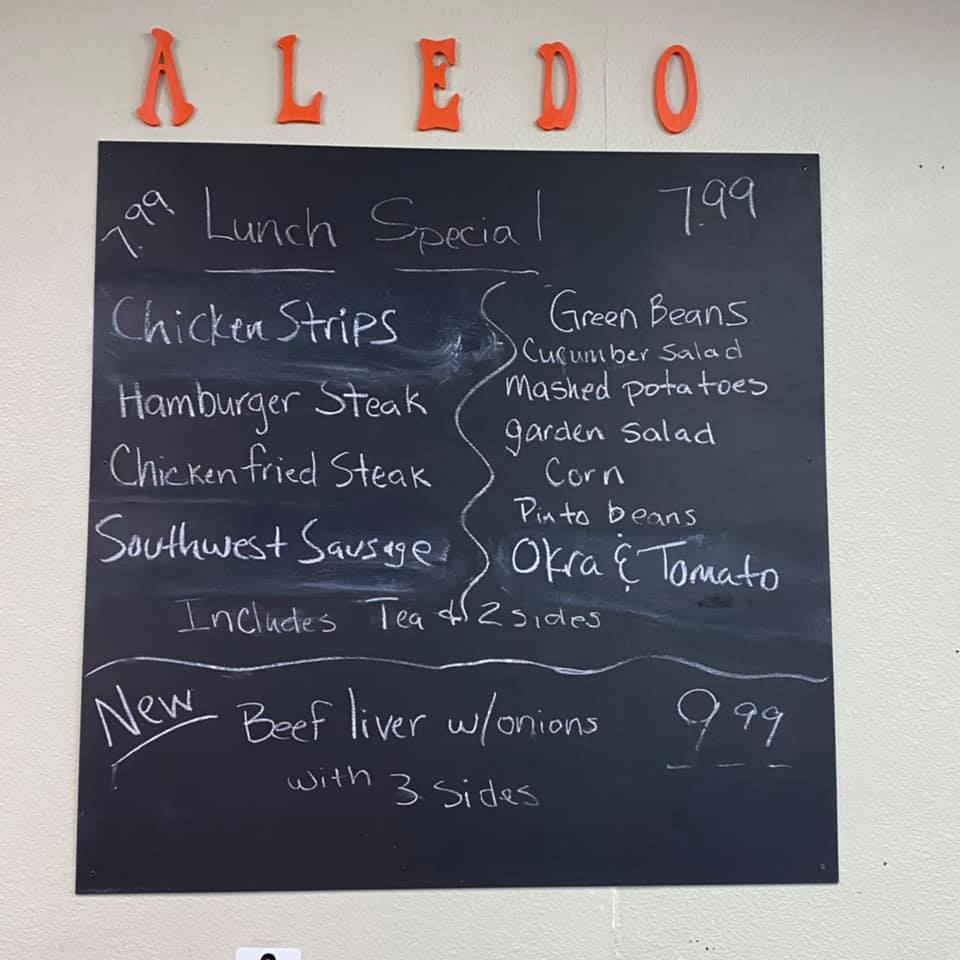 ALEDO
7.99 Lunch Special 7.99
Chicken Strips
Hamburger Steak
Chicken fried Steak
Southwest Sausage
Green Beans
Cucumber Salad
Mashed potatoes
garden Salad
Corn
Pinto beans
Okra & Tomato
Includes Tea & 2 sides
New Beef liver w/onions 9 99
with 3 Sides